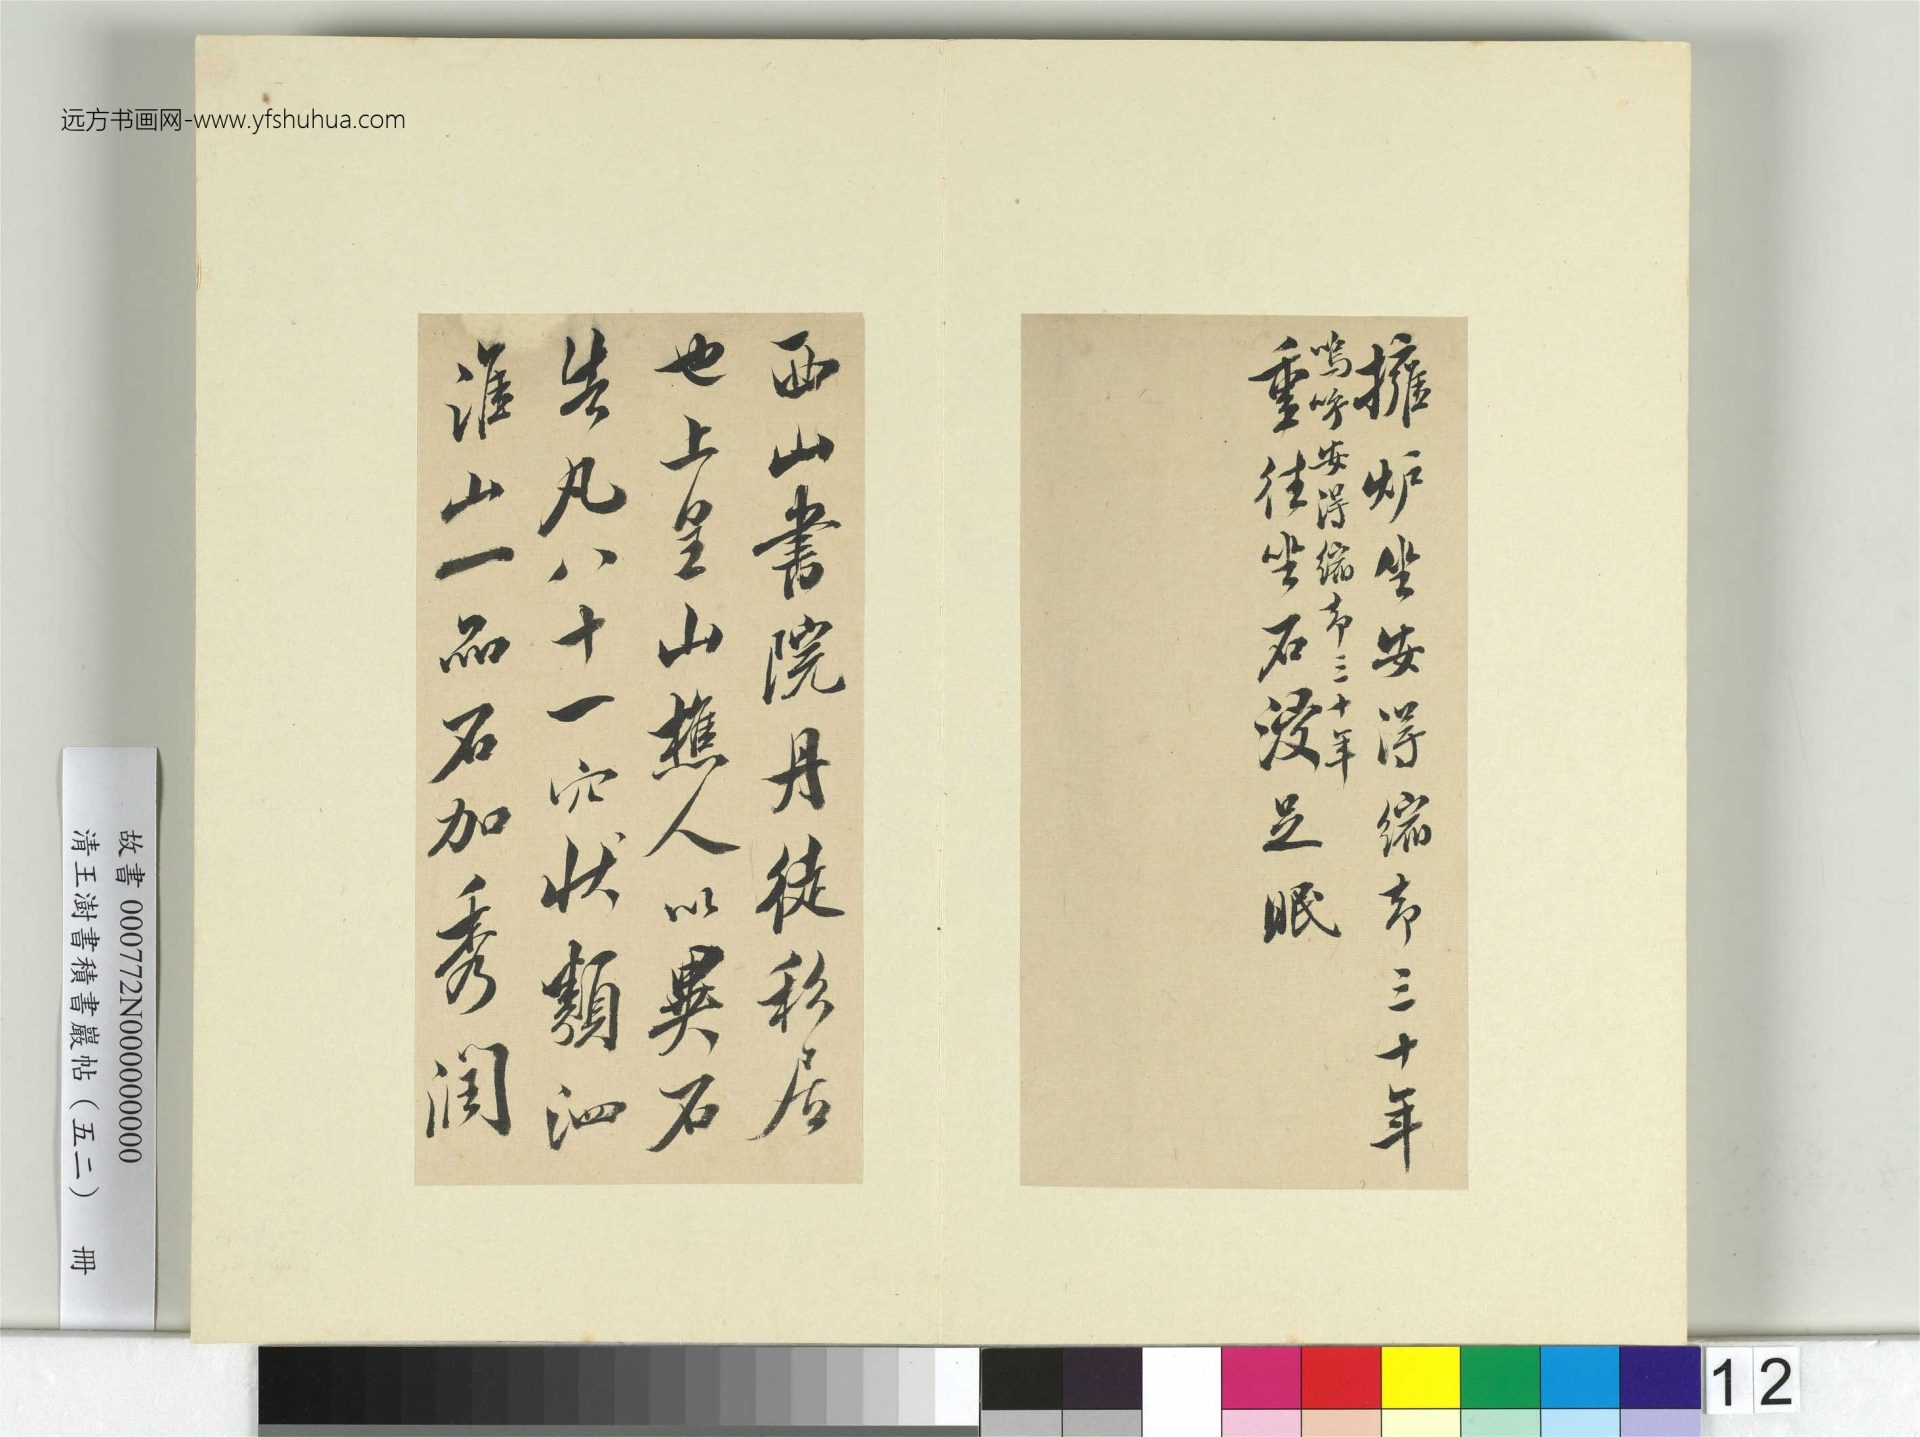 远方书画网-www.yfshuhua.com
擁炉坐安得縮却三十年
嗚呼安得縮却三十年
重往坐石浸足眠
西山書院丹徒私居
也上皇山樵人以異石
告凡八十一穴状類泗
淮山一品石加秀润
故書 000772N000000000
清王澍書積書巖帖（五二） 冊
12